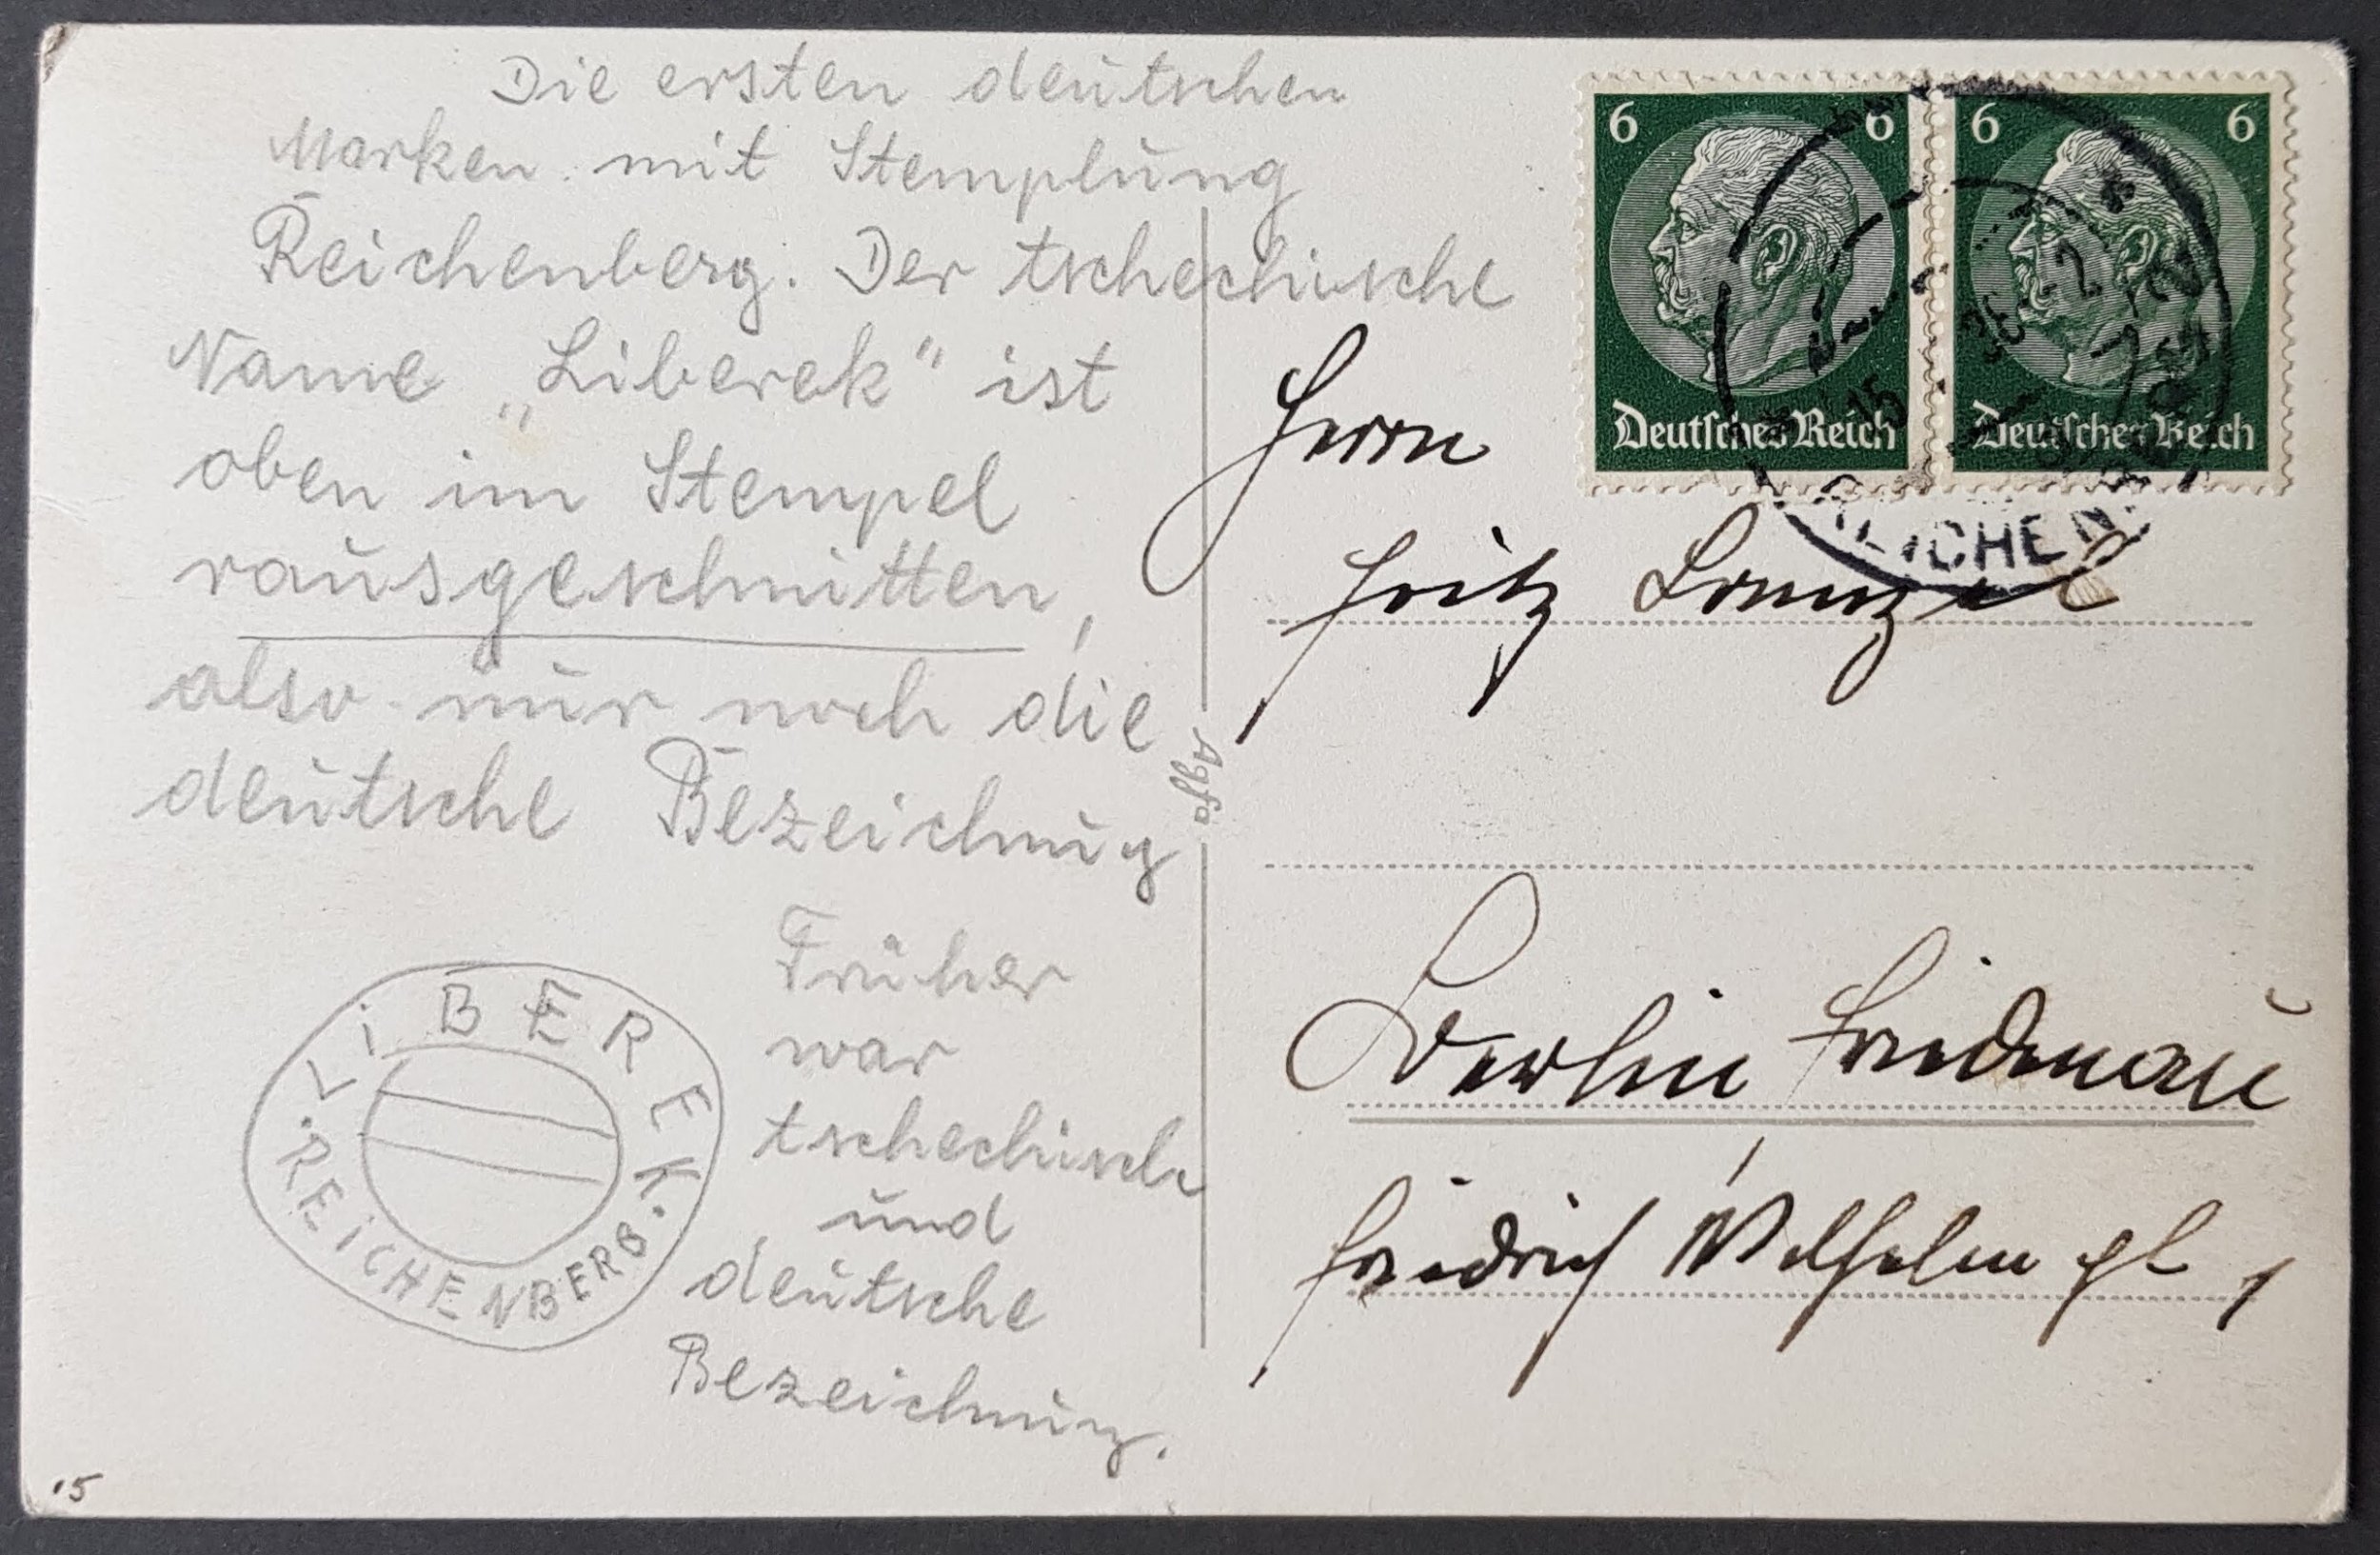 Die ersten deutschen
Marken mit Stemplung
Reichenberg. Der tschechische
Name „Liberek" ist
oben im Stempel
rausgeschnitten,
also nur noch die
deutsche Bezeichnug
Früher
war
tschechische
und
deutsche
Bezeichnung.
LIBEREK
· REICHENBERG ·
'5
Agfa
6 6
Deutsches Reich
6 6
Deutsches Reich
REICHENB
15
Herrn
Fritz
Berlin Friedenau
Friedrich Wilhelm pl 1